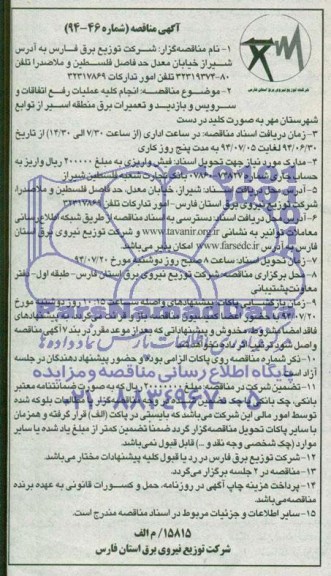 آگهی مناقصه (شماره ۴۶-۹۴)
شرکت توزیع نیروی برق استان فارس
۱- نام مناقصه‌گزار: شرکت توزیع برق فارس به آدرس
شیراز خیابان معدل حد فاصل فلسطین و ملاصدرا تلفن
۸۰-۳۲۳۱۹۳۷۴ تلفن امور تدارکات ۳۲۳۱۷۸۶۹
۲- موضوع مناقصه: انجام کلیه عملیات رفع اتفاقات و
سرویس و بازدید و تعمیرات برق منطقه اسیر از توابع
شهرستان مهر به صورت کلید در دست
۳- زمان دریافت اسناد مناقصه: در ساعت اداری (از ساعت ۷/۳۰ الی ۱۴/۳۰) از تاریخ
۹۴/۰۶/۳۰ لغایت ۹۴/۰۷/۰۵ به مدت پنج روز کاری
۴- مدارک مورد نیاز جهت تحویل اسناد: فیش واریزی به مبلغ ۲۰۰۰۰۰ ریال واریز به
بانک تجارت شعبه فلسطین شیراز
۵- آدرس محل دریافت اسناد: شیراز، خیابان معدل، حد فاصل فلسطین و ملاصدرا،
شرکت توزیع نیروی برق استان فارس- امور تدارکات تلفن ۳۲۳۱۷۸۶۹
۶- آدرس محل دریافت اسناد دسترسی به اسناد مناقصه از طریق شبکه اطلاع رسانی
معاملات توانیر به نشانی www.tavanir.org.ir و شرکت توزیع نیروی برق استان
فارس به آدرس www.farsedc.ir امکان پذیر می‌باشد
۷- زمان تحویل اسناد: ساعت ۸ صبح روز دوشنبه مورخ ۹۴/۰۷/۲۰
۸- محل برگزاری مناقصه: شرکت توزیع نیروی برق استان فارس- طبقه اول- دفتر
معاونت پشتیبانی
۹- زمان بازگشایی پاکات: پیشنهادهای واصله ساعت ۱۰:۱۵ روز دوشنبه مورخ
۹۴/۰۷/۲۰
فاقد امضا، مشروط، مخدوش و پیشنهاداتی که بعد از موعد مقرر در بند ۷ آگهی مناقصه
۱۰- ذکر شماره مناقصه روی پاکات الزامی بوده و حضور پیشنهاد دهندگان در جلسه
آزاد است
۱۱- تضمین شرکت در مناقصه: مبلغ ۲۰۰۰۰۰۰۰ ریال که به صورت ضمانتنامه معتبر
توسط امور مالی این شرکت می‌باشد که بایستی در پاکت (الف) قرار گرفته و همزمان
با سایر پاکات تحویل مناقصه‌گزار گردد ضمناً تضمین کمتر از مبلغ یاد شده یا سایر
موارد (چک شخصی وجه نقد و ...) قابل قبول نمی‌باشد.
۱۲- شرکت توزیع برق فارس در رد یا قبول کلیه پیشنهادات مختار می‌باشد.
۱۳- مناقصه در ۲ جلسه برگزار می‌گردد.
۱۴- پرداخت هزینه چاپ آگهی در روزنامه، حمل و کسورات قانونی به عهده برنده
مناقصه می‌باشد.
۱۵- سایر اطلاعات و جزئیات مربوط در اسناد مناقصه مندرج است.
۱۵۸۱۵/ م الف
شرکت توزیع نیروی برق استان فارس
پایگاه اطلاع رسانی مناقصه و مزایده
۰۲۱-۸۸۳۴۹۶۷۰-۵